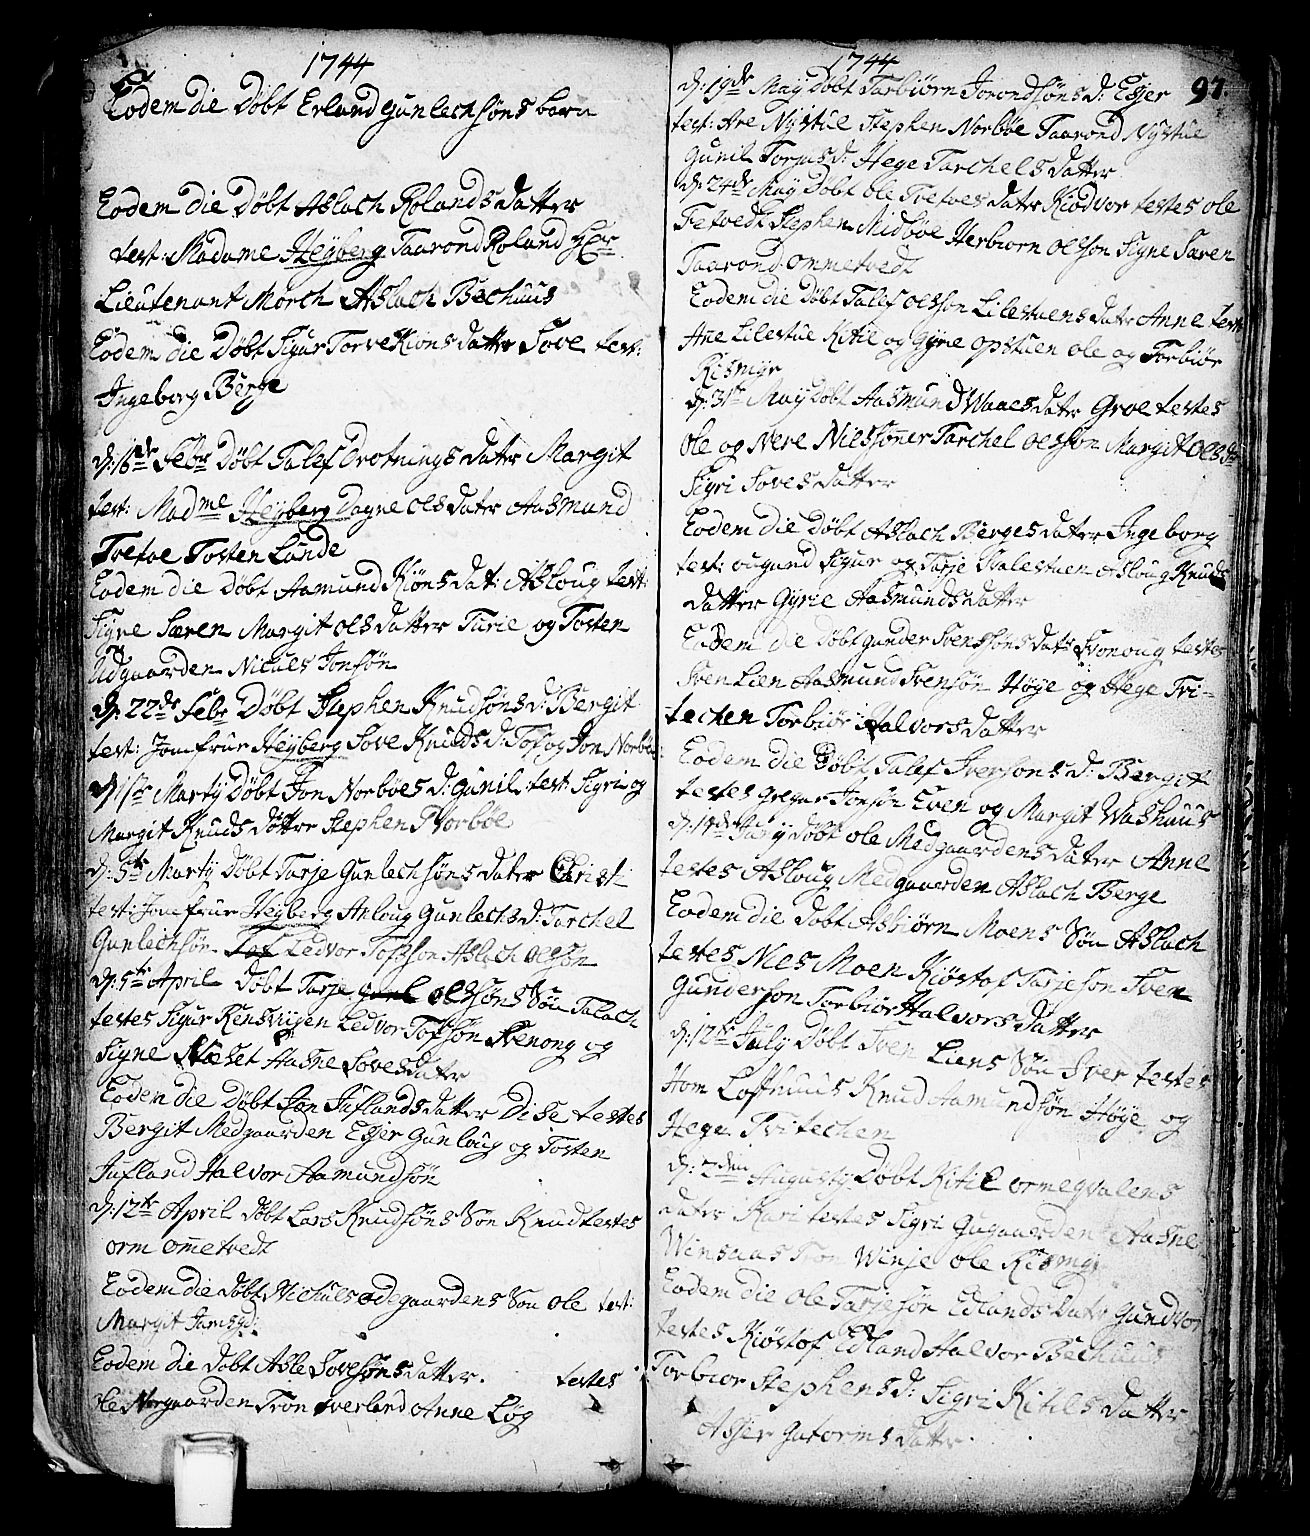 1744
Eodem die Døbt Erland Gunlechsøns barn
Eodem die Døbt Aslach Rolands datter
test: Madame Heyberg Taarond Roland Hr
Lieutenant Morch Aslach Bechuus
Eodem die Døbt Sigur Torvekions datter Søve test:
Ingeborg Berge
D: 16de Febr Døbt Talef Drotnings dater Margit
test: Madme Heyberg Dagne Olsdater Aasmund
Tvetoe Tosten Lunde
Eodem die døbt Aamund Kiøns dat: Asloug test:
Signe Særen Margit Olsdatter Turie og Tosten
Udgaarden Nicules Jonsøn
D: 22de Febr Døbt Stephen Knudsøns d: Bergit
test: Jomfrue Heyberg Søve Knudsd: Tof og Jon Norbøe
D: 1ste Marty Døbt Jon Norbøes d: Gunil, test Sigri og
Margit Knuds døttre Stephen Norbøe
D: 5te Marty Døbt Tarje Gunlechsøns dater Christi
test: Jomfrue Heyberg Anloug Gunlechsd: Tarchel
Gunlechsøn Tof Ledvor Tofsson Aslach Olsøn
D: 5te April døbt Tarje Gunl Olssøns Søn Talach
testes Sigur Rensviigen Ledvor Tofsøn Svenong og
Signe Aase Søvesdater
Eodem die Døbt Jon Juflands datter Dise testes
Bergit Medgaarden Esser Gunloug og Tosten
Jufland Halvor Aamundsøn
D: 12te April døbt Lars Knudsøns Søn Knud testes
Orm Ommetvedt
Eodem die døbt Nichuls Ødegaardens Søn Ole test:
Margit Jamsgd:
Eodem die døbt Asle Sovesøns datter. testes
Ole Norgaarden Tron Overland Anne Løg
1744
97
D: 19de May døbt Tarbiørn Jorondsøns d: Esser
test: Are Nystue Stephen Norbøe Taarond Nystue
Gunil Tormsd: Hege Tarchelsdatter
D: 24de May Døbt Ole Tvetoes dater Kiødvor testes Ole
Fetvedt Stephen Midbøe Herbiorn Olsson Signe Særen
Taarond Ommetvedt
Eodem die Døbt Talef Olsson Lilestuens dater Anne test:
Anne Lilestue Kitil og Gyre Opstuen Ole og Torbiør
Rismyr
D: 31te May Døbt Aasmund Waaes dater Groe testes
Ole og Nere Nilssønner Tarchel Olsson Margit Olsdr
Sigri Soves datter
Eodem die døbt Aslach Berges dater Ingeborg
test: Ougund Sigur og Tarje Halestuen Asloug Knuds
datter Gyrie Aasmundsdatter
Eodem die Døbt Gunder Svenssøns dater Svonoug testes
Sven Lien Aasmund Svensøn Høye og Hege Tvi-
techen Torbiør Halvorsdatter
Eodem die Døbt Talef Iversons d: Bergit
testes Gregar Jonsøn Even og Margit Washuus
D: 14de July døbt Ole Medgaardens dater Anne
testes Asloug Medgaarden Aslach Berge
Eodem die døbt Asbiørn Moens Søn Aslach
testes Nils Moen Kiøstof Tarjeson Sven
Gunderson Torbiør Halvorsdatter
D: 12te July Døbt Sven Liens Søn Iver testes
Hom Lofthuus Knud Aamundsøn Høye og
Hege Tvitechen
D: 2den Augusty Døbt Kitil Ornegvalens
dater Kari testes Sigri Gugaarden Aasne
Winsaas Tron Winje Ole Rismyr
Eodem die Ole Tarjesøn Edlands dater Gundvor
testes Kiøstof Edland Halvor Bechuus
Torbiør Stephensd: Sigri Kitelsdatter
Asser Gutormsdatter.